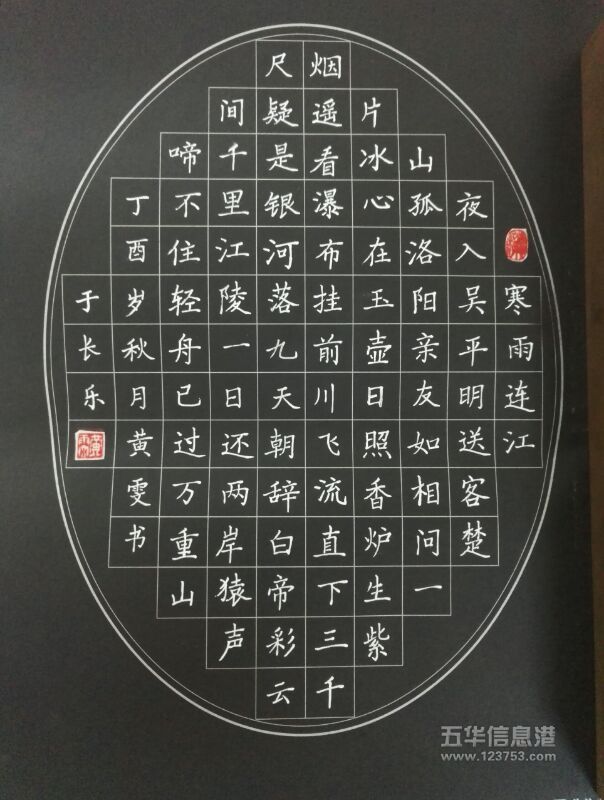 寒雨连江
夜入吴平明送客楚
山孤洛阳亲友如相问一
片冰心在玉壶日照香炉生紫
烟遥看瀑布挂前川飞流直下三千
尺疑是银河落九天朝辞白帝彩云
间千里江陵一日还两岸猿声
啼不住轻舟已过万重山
丁酉岁秋月黄雯书
于长乐
五华信息港
www.123753.com